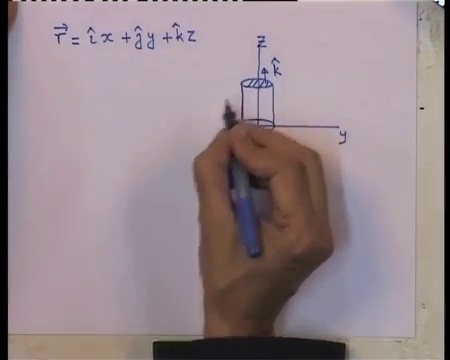 r⃗ = îx + ĵy + k̂z
z
k̂
y